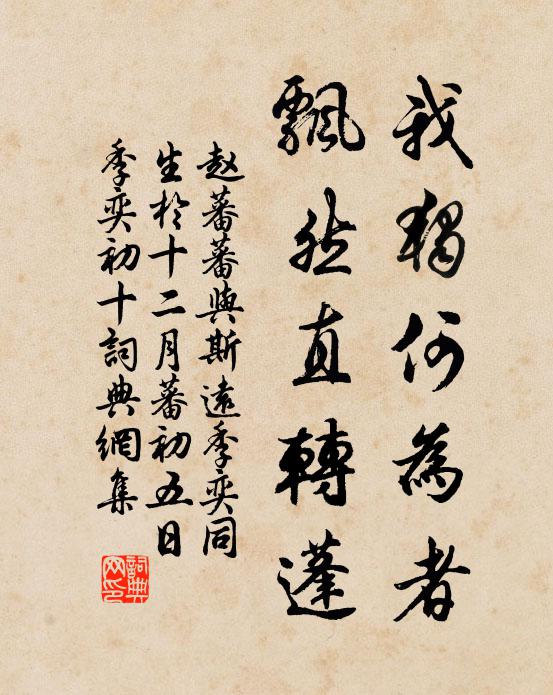 我獨何為者
飄然直轉蓬
赵蕃蕃與斯遠季奕同
生於十二月蕃初五日
季奕初十詞典網集
詞典网印